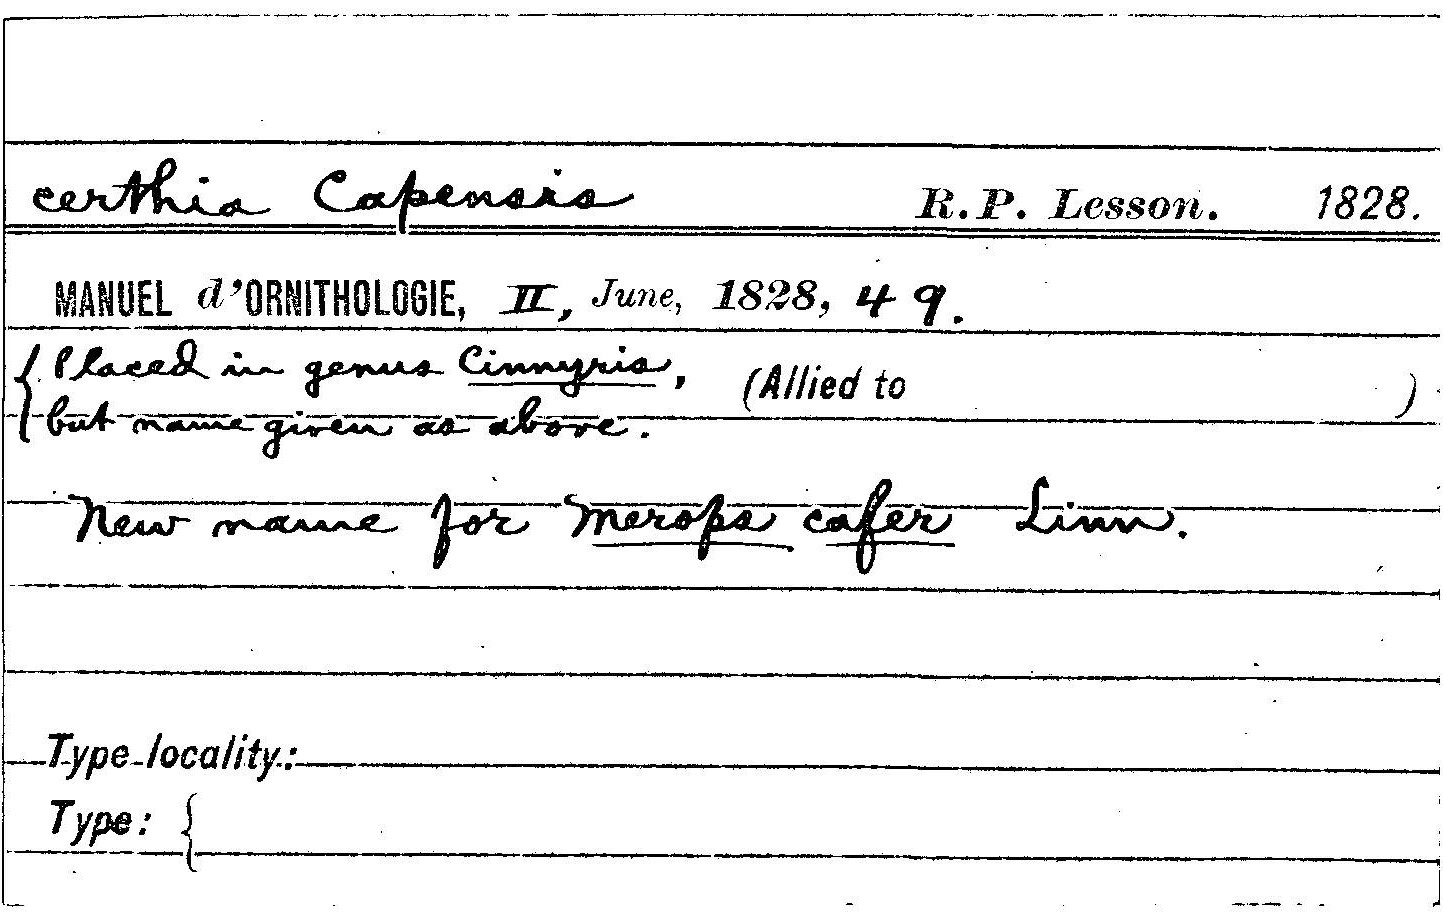 certhia Capensis R.P. Lesson. 1828.
MANUEL d'ORNITHOLOGIE, II, June, 1828, 49.
{ Placed in genus Cinnyris, (Allied to )
but name given as above.
New name for Merops cafer Linn.
Type locality:
Type: {